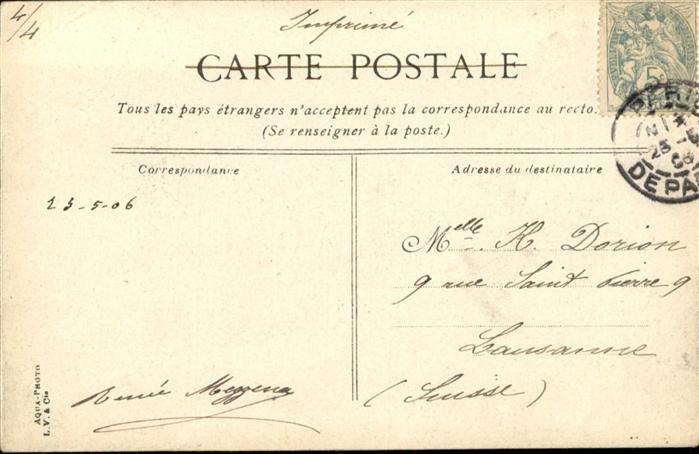 4/4
Imprimé
CARTE POSTALE
Tous les pays étrangers n'acceptent pas la correspondance au recto.
(Se renseigner à la poste.)
Correspondance
Adresse du destinataire
23-5-06
Melle. H. Dorion
9 rue Saint Pierre 9
Lausanne
(Suisse)
Renée
AQUA-PHOTO
L.V. & Cie
5
PARIS
25
DEPART